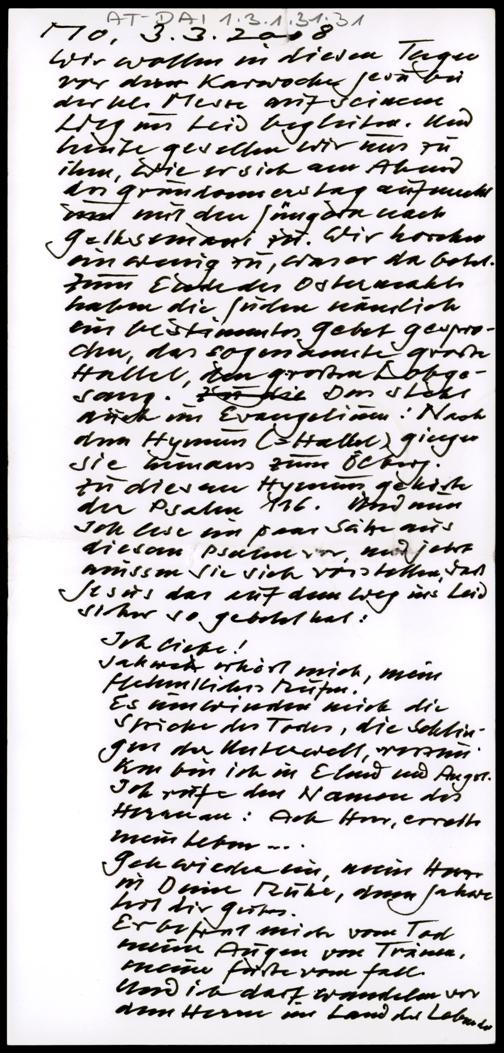 AT-DAI 1.3.1.31.31
Mo, 3.3.2008
Wir wollen in diesen Tagen
vor der Karwoche Jesu bei
der hl. Messe auf seinem
Weg ins Leid begleiten. Und
heute gesellen wir uns zu
ihm, wie er sich am Abend
des Gründonnerstag aufmacht
und mit den Jüngern nach
Gethsemani . Wir horchen
ein wenig zu, was er da betet.
Zum Ende des Ostermahls
haben die Juden nämlich
ein bestimmtes Gebet gespro-
chen, das sogenannte große
Hallel, den großen Lobge-
sang. Das steht
auch im Evangelium: Nach
dem Hymnus (= Hallel) gingen
sie hinaus zum Ölberg.
Zu diesem Hymnus gehörte
der Psalm 116. Und nun
ich lese ein paar Sätze aus
diesem Psalm vor, und jetzt
müssen Sie sich vorstellen, daß
Jesus das auf dem Weg ins Leid
sicher so gebetet hat:
Ich liebe!
Jahweh erhört mich, mein
flehentliches Rufen.
Es umwinden mich die
Stricke des Todes, die Schlin-
gen der Unterwelt, versun-
ken bin ich in Elend und Angst.
Ich rufe den Namen des
Herrn an: Ach Herr, errette
mein Leben ...
Geh wieder ein, mein Herz
in Deine Ruhe, denn Jahwe
hat dir gutes.
Er befreit mich vom Tod
meine Augen von Tränen,
meine Füße vom Fall.
Und ich darf wandeln vor
dem Herrn im Land der Lebenden